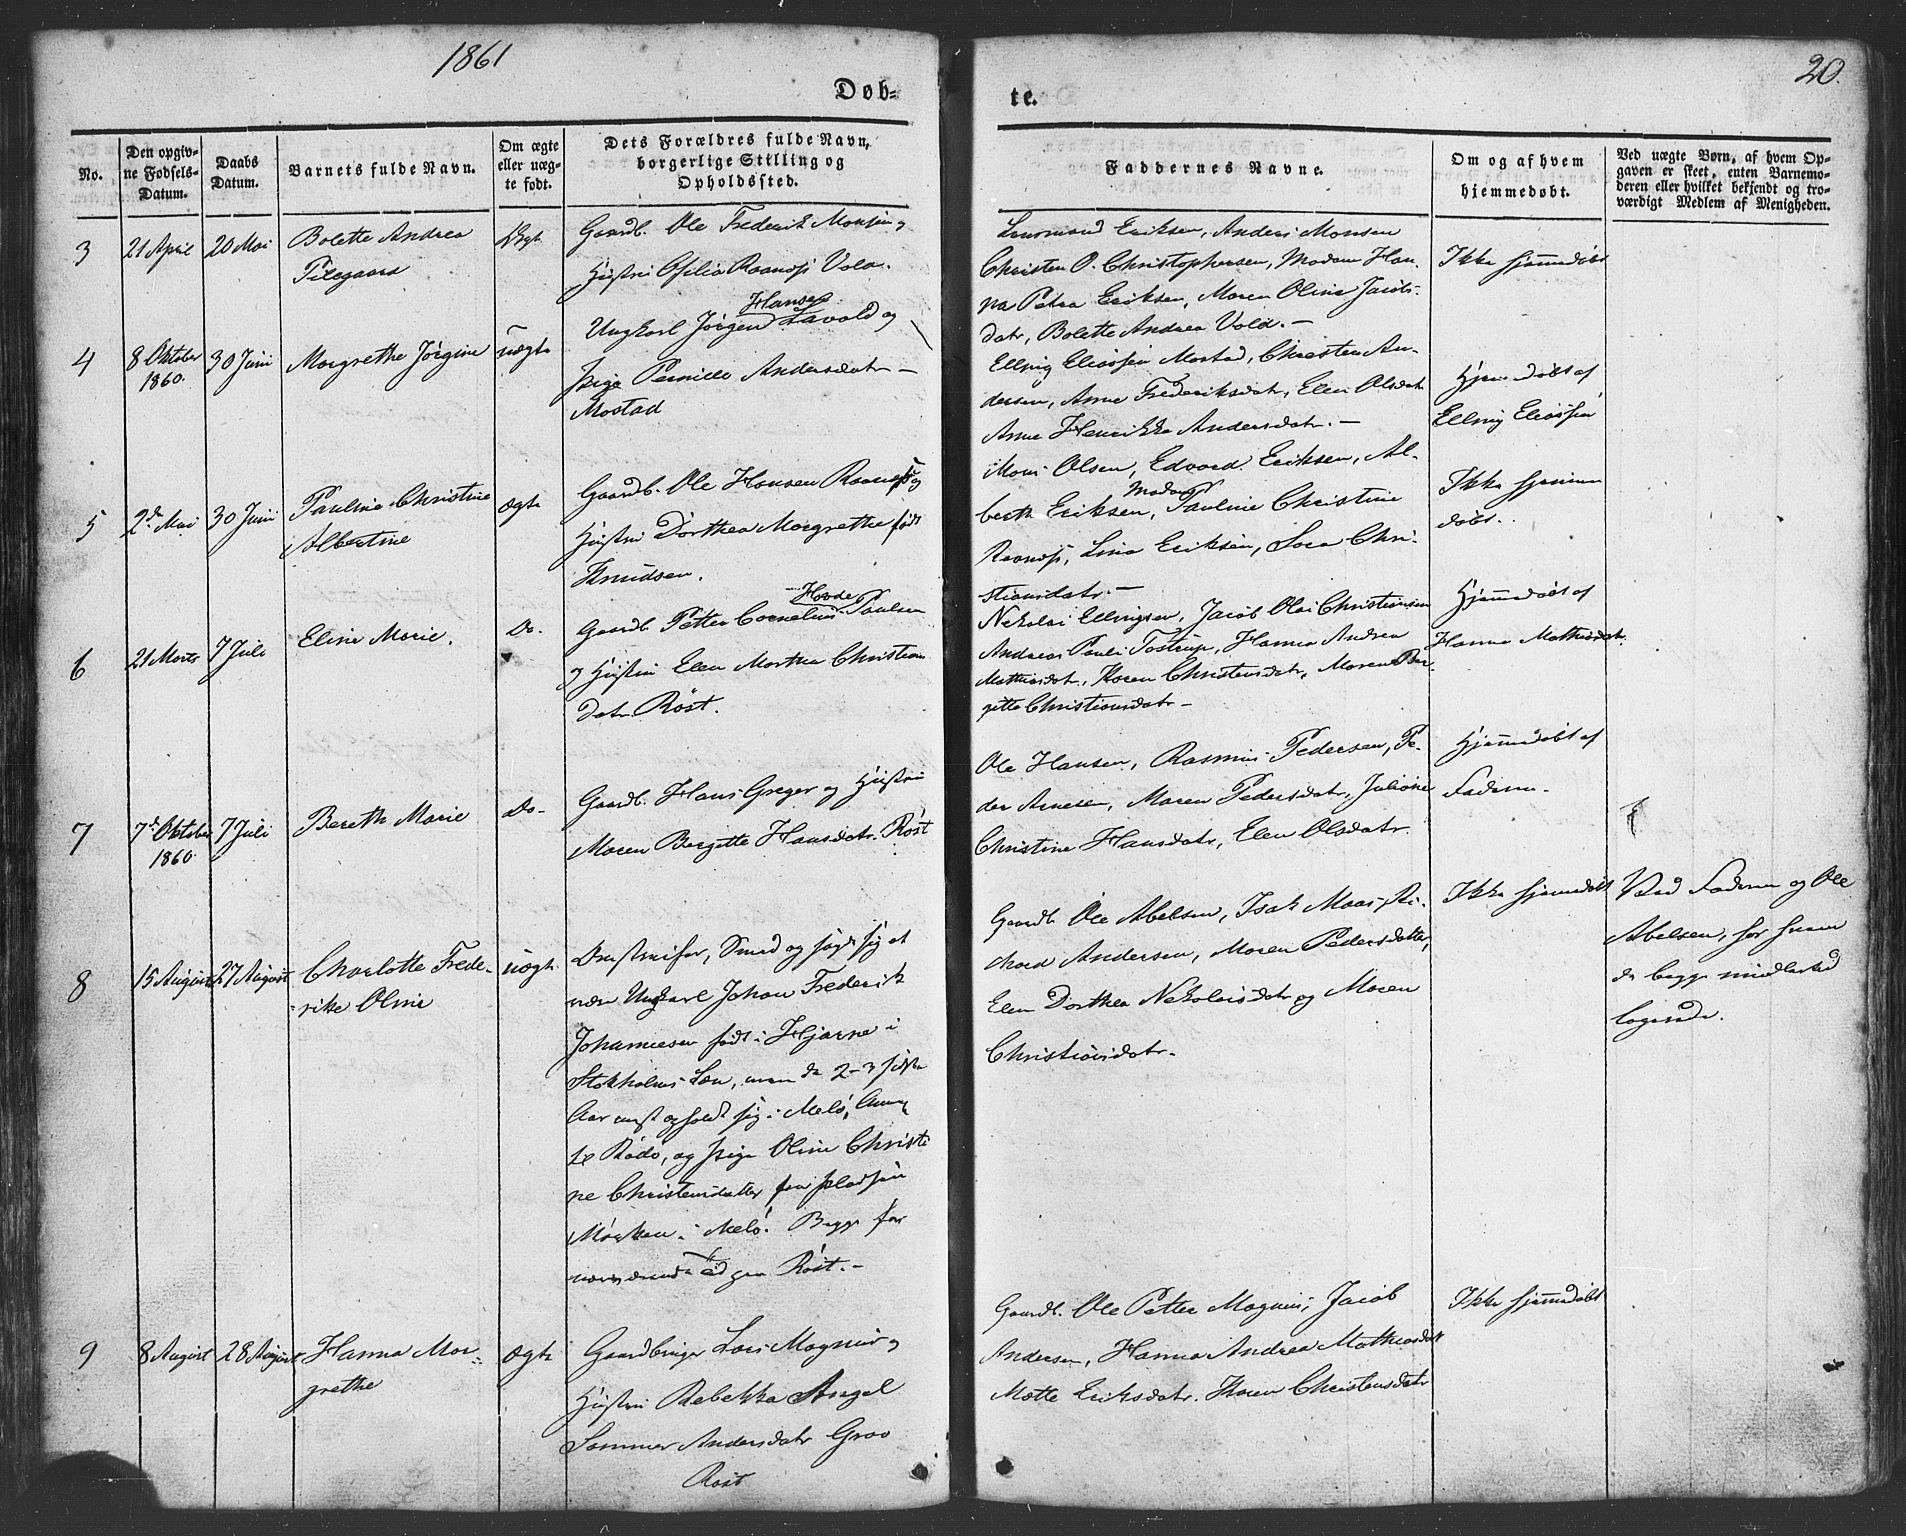 1861
20.
Døb-
te.
No.
Den opgiv-
ne Fødsels-
Datum.
Daabs
Datum.
Barnets fulde Navn.
Om ægte
eller uæg-
te født.
Dets Forældres fulde Navn,
borgerlige Stilling og
Opholdssted.
Faddernes Navne.
Om og af hvem
hjemmedøbt.
Ved uægte Børn, af hvem Op-
gaven er skeet, enten Barnemo-
deren eller hvilket bekjendt og tro-
værdigt Medlem af Menigheden.
3
21 April
20 Mai
Bolette Andrea
Ægt.
Gaardb. Ole Frederik
Hustru
Eriksen, Anders Monsen
Christen P. Christophersen, Madam Han-
na Petra Eriksen, Maren Oline Jacobs-
datr, Bolette Andrea Vold.-
Ikke hjemmedøbt
4
8 Oktober
1860.
30 Juni
Margrethe Jørgine
uægte
Hansen
Ungkarl Jørgen Lavold og
Pige Pernille Andersdatr -
Mostad
Elling Eliassen Mostad, Christen An-
dersen, Anne Frederiksdatr, Elen Olsdatr
Anne Henrikke Andersdatr.-
Hjemmedøbt af
Elling Eliassen
5
2de Mai
30 Juni
Pauline Christine
Albertine
ægte
Gaardb. Ole Hansen
Hustru Dorthea Margrethe født
Knudsen.
Mons Olsen, Edvard Eriksen, Al-
berth Eriksen, Madam Pauline Christine
Lina Eriksen, Chri-
stiansdatr.-
Ikke hjemme
døbt.
6
21 Marts
7 Juli
Eline Marie.
Do.
Hovde
Gaardb. Petter Cornelius Paulsen
og Hustru Elen Marthea Christian
datr Røst.
Nekolai Ellingsen, Jacob Olai Christiansen
Andreas Pauli Tostrup, Hanna Andrea
Mathiasdatr, Karen Christensdatr, Maren Ber-
gitte Christiansdatr -
Hjemmedøbt af
Hanna Mathiasdatr.
7
7de Oktober
1860.
7 Juli
Bereth Marie
Do-
Gaardb. Hans Greger og Hustru
Maren Bergitte Hansdatr. Røst
Ole Hansen, Rasmus Pedersen, Pe-
der Arnesen, Maren Pedersdatr, Juliane
Christine Hansdatr, Elen Olsdatr
Hjemmedøbt af
Faderen.
8
15 August
27 August
Charlotte Frede-
rikke Oline
uægte
Smed og sagde sig at
være Ungkarl Johan Frederik
Johannesen født i Hjarne i
Stokholms Læn, men de 2-3 sidste
Aar opholdt sig i Melø,
Rødø, og Pige Oline Christi
ne Christensdatter fra Pladsen
i Melø. Begge for
nærværende paa Røst.-
Gaardb. Ole Abelsen, Isak Ri-
chard Andersen, Maren Pedersdatter,
Elen Dorthea Nekolaisdatr og Maren
Christiansdatr.
Ikke hjemmedøbt
Ved Faderen og Ole
Abelsen, for hvem
de begge midlertid
9
8 August
28 August
Hanna Mar-
grethe
ægte
Gaardbruger Lars Magnus og
Hustru Rebekka Angel
Sommer Andersdatr
Røst
Gaardb. Ole Petter Magnus, Jacob
Andersen, Hanna Andrea Mathiasdatr
Mette Eriksdatr. Karen Christensdatr
Ikke hjemmedøbt